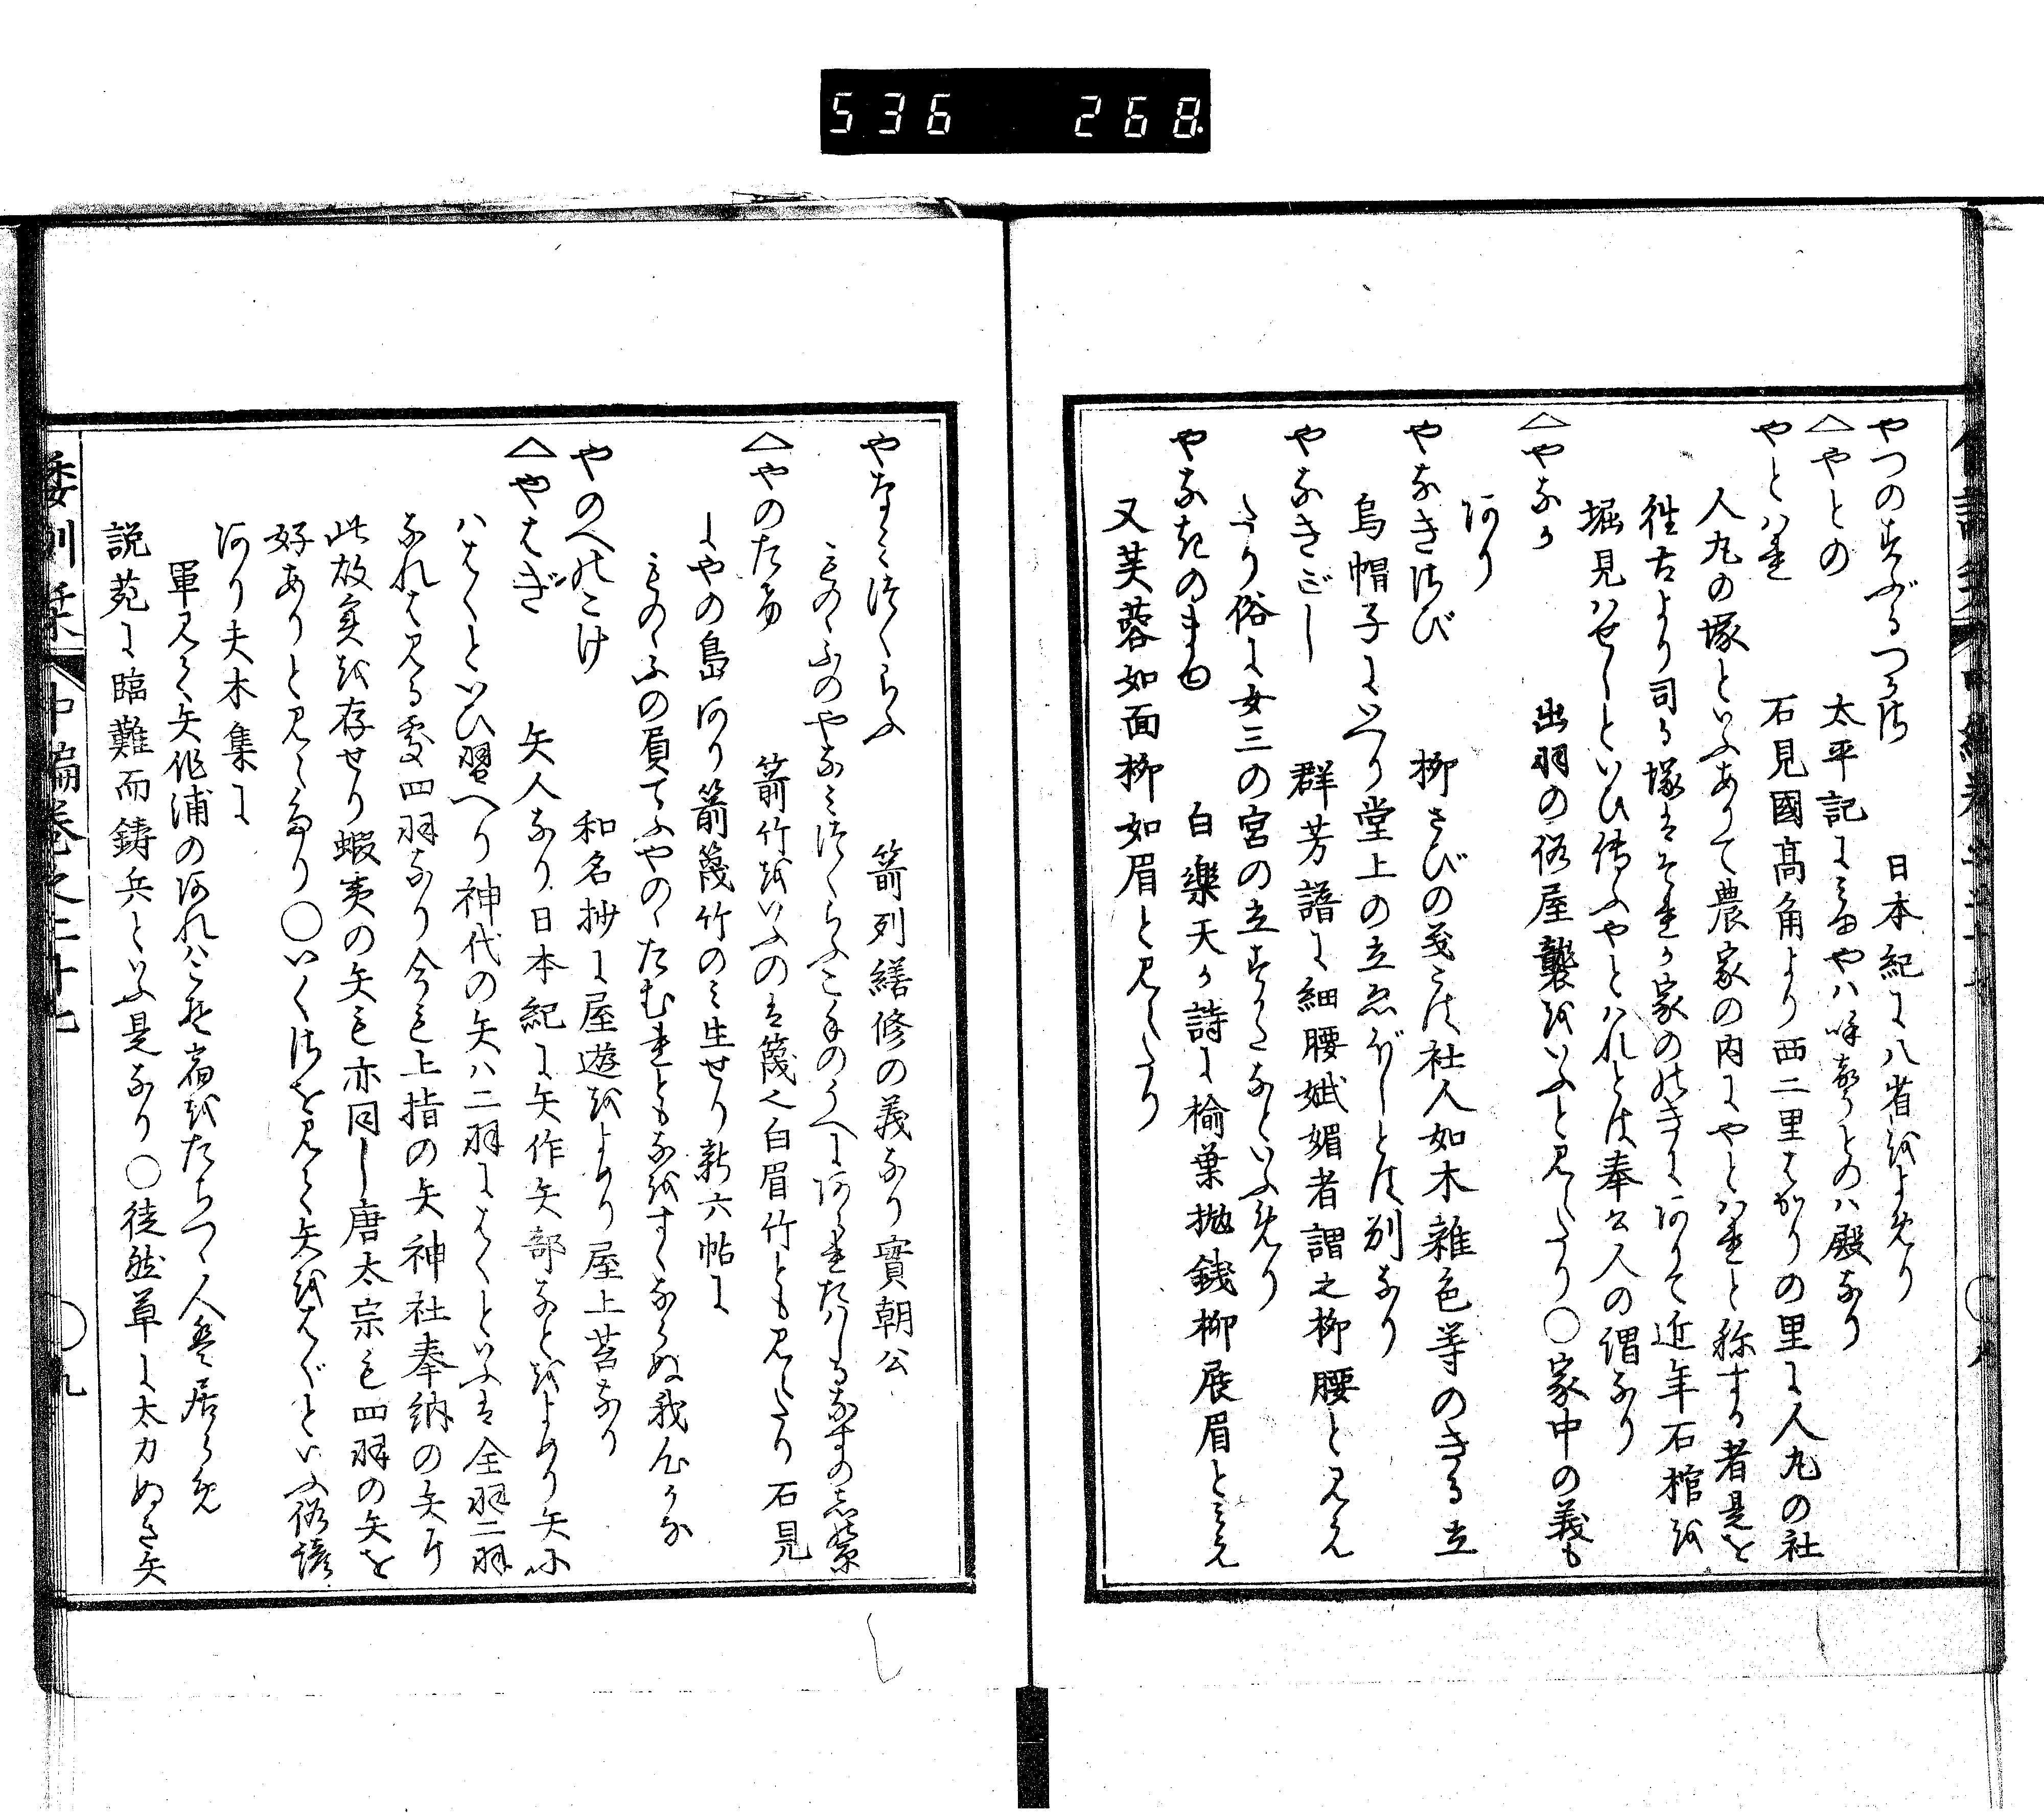 536 268
やつのすぶるつかさ 日本紀に八省をよめり
△やとの 太平記にみゆやハ味あかとのハ殿なり
やとハれ 石見國高角より西二里はかりの里に人丸の社
人丸の塚といふありて農家の内にやとハれと称する者是を
往古より司る塚はそれか家のさきにありて近年石棺を
堀見ハせしといひ傳ふやとハれとは奉公人の謂なり
△やなか 出羽の俗屋襲をいふと見えたり○家中の義も
あり
やなきさび 柳さびの義こは社人如木雑色等のきる立
烏帽子にいへり堂上の立ゑぼしとは別なり
やなきごし 群芳譜に細腰娬媚者謂之柳腰と見え
たり俗に女三の宮の立すかたなといふめり
やなきのまゆ 白樂天か詩に楡葉抛銭柳展眉とみえ
又芙蓉如面柳如眉と見えたり
やなみつくらふ 箭列繕修の義なり實朝公
ものゝふのやなみつくらふこてのうへにあられたはしるなすの志の原
△やのたけ 箭竹をいふの は篾之白眉竹とも見えたり石見
にやの島あり箭篾竹のミ生せり新六帖に
ものゝふの負てふやのゝたむれともなをすくならぬ我心かな
やのへのこけ 和名抄に屋遊をよめり屋上苔なり
△やはぎ 矢人なり日本紀に矢作矢部なとをよめり矢に
ハはくといひ習へり神代の矢ハ二羽にはくといふは全羽二羽
なれは見る処四羽なり今も上指の矢神社奉納の矢に
此故実を存せり蝦夷の矢も亦同し唐太宗も四羽の矢を
好ありと見えたり○いくさを見て矢をはぐといふ俗諺
あり夫木集に
軍見て矢作浦のあれハこそ宿をたちつゝ人い居らめ
説苑に臨難而鋳兵といふ是なり○徒然草に太刀ぬき矢
倭訓栞 中編巻之二十七 ○九